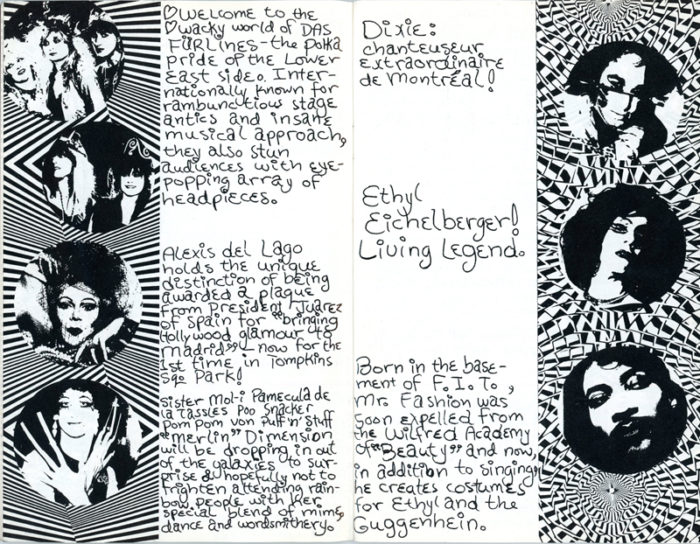 ♡WELCOME to the
♡wacky world of DAS
FÜRLINES-the polka
pride of the Lower
East side. Inter-
nationally known for
rambunctious stage
antics and insane
musical approach,
they also stun
audiences with eye-
popping array of
headpieces.
Alexis del Lago
holds the unique
distinction of being
awarded a plaque
from President Juarez
of Spain for "bringing
Hollywood glamour to
Madrid" - now for the
1st time in Tompkins
Sq. Park!
Sister Mol-i Pamecula de
la Tassles Poo Snacker
Pom Pom von Puff 'n' Stuff
"Merlin" Dimension
will be dropping in out
of the galaxies to sur-
prise & hopefully not to
frighten attending rain-
bow people with her
special blend of mime,
dance and wordsmithery.
Dixie:
chanteuseur
extraordinaire
de Montréal!
Ethyl
Eichelberger!
Living Legend.
Born in the base-
ment of F.I.T.,
Mr. Fashion was
soon expelled from
the Wilfred Academy
of "Beauty" and now,
in addition to singing,
he creates costumes
for Ethyl and the
Guggenhein.